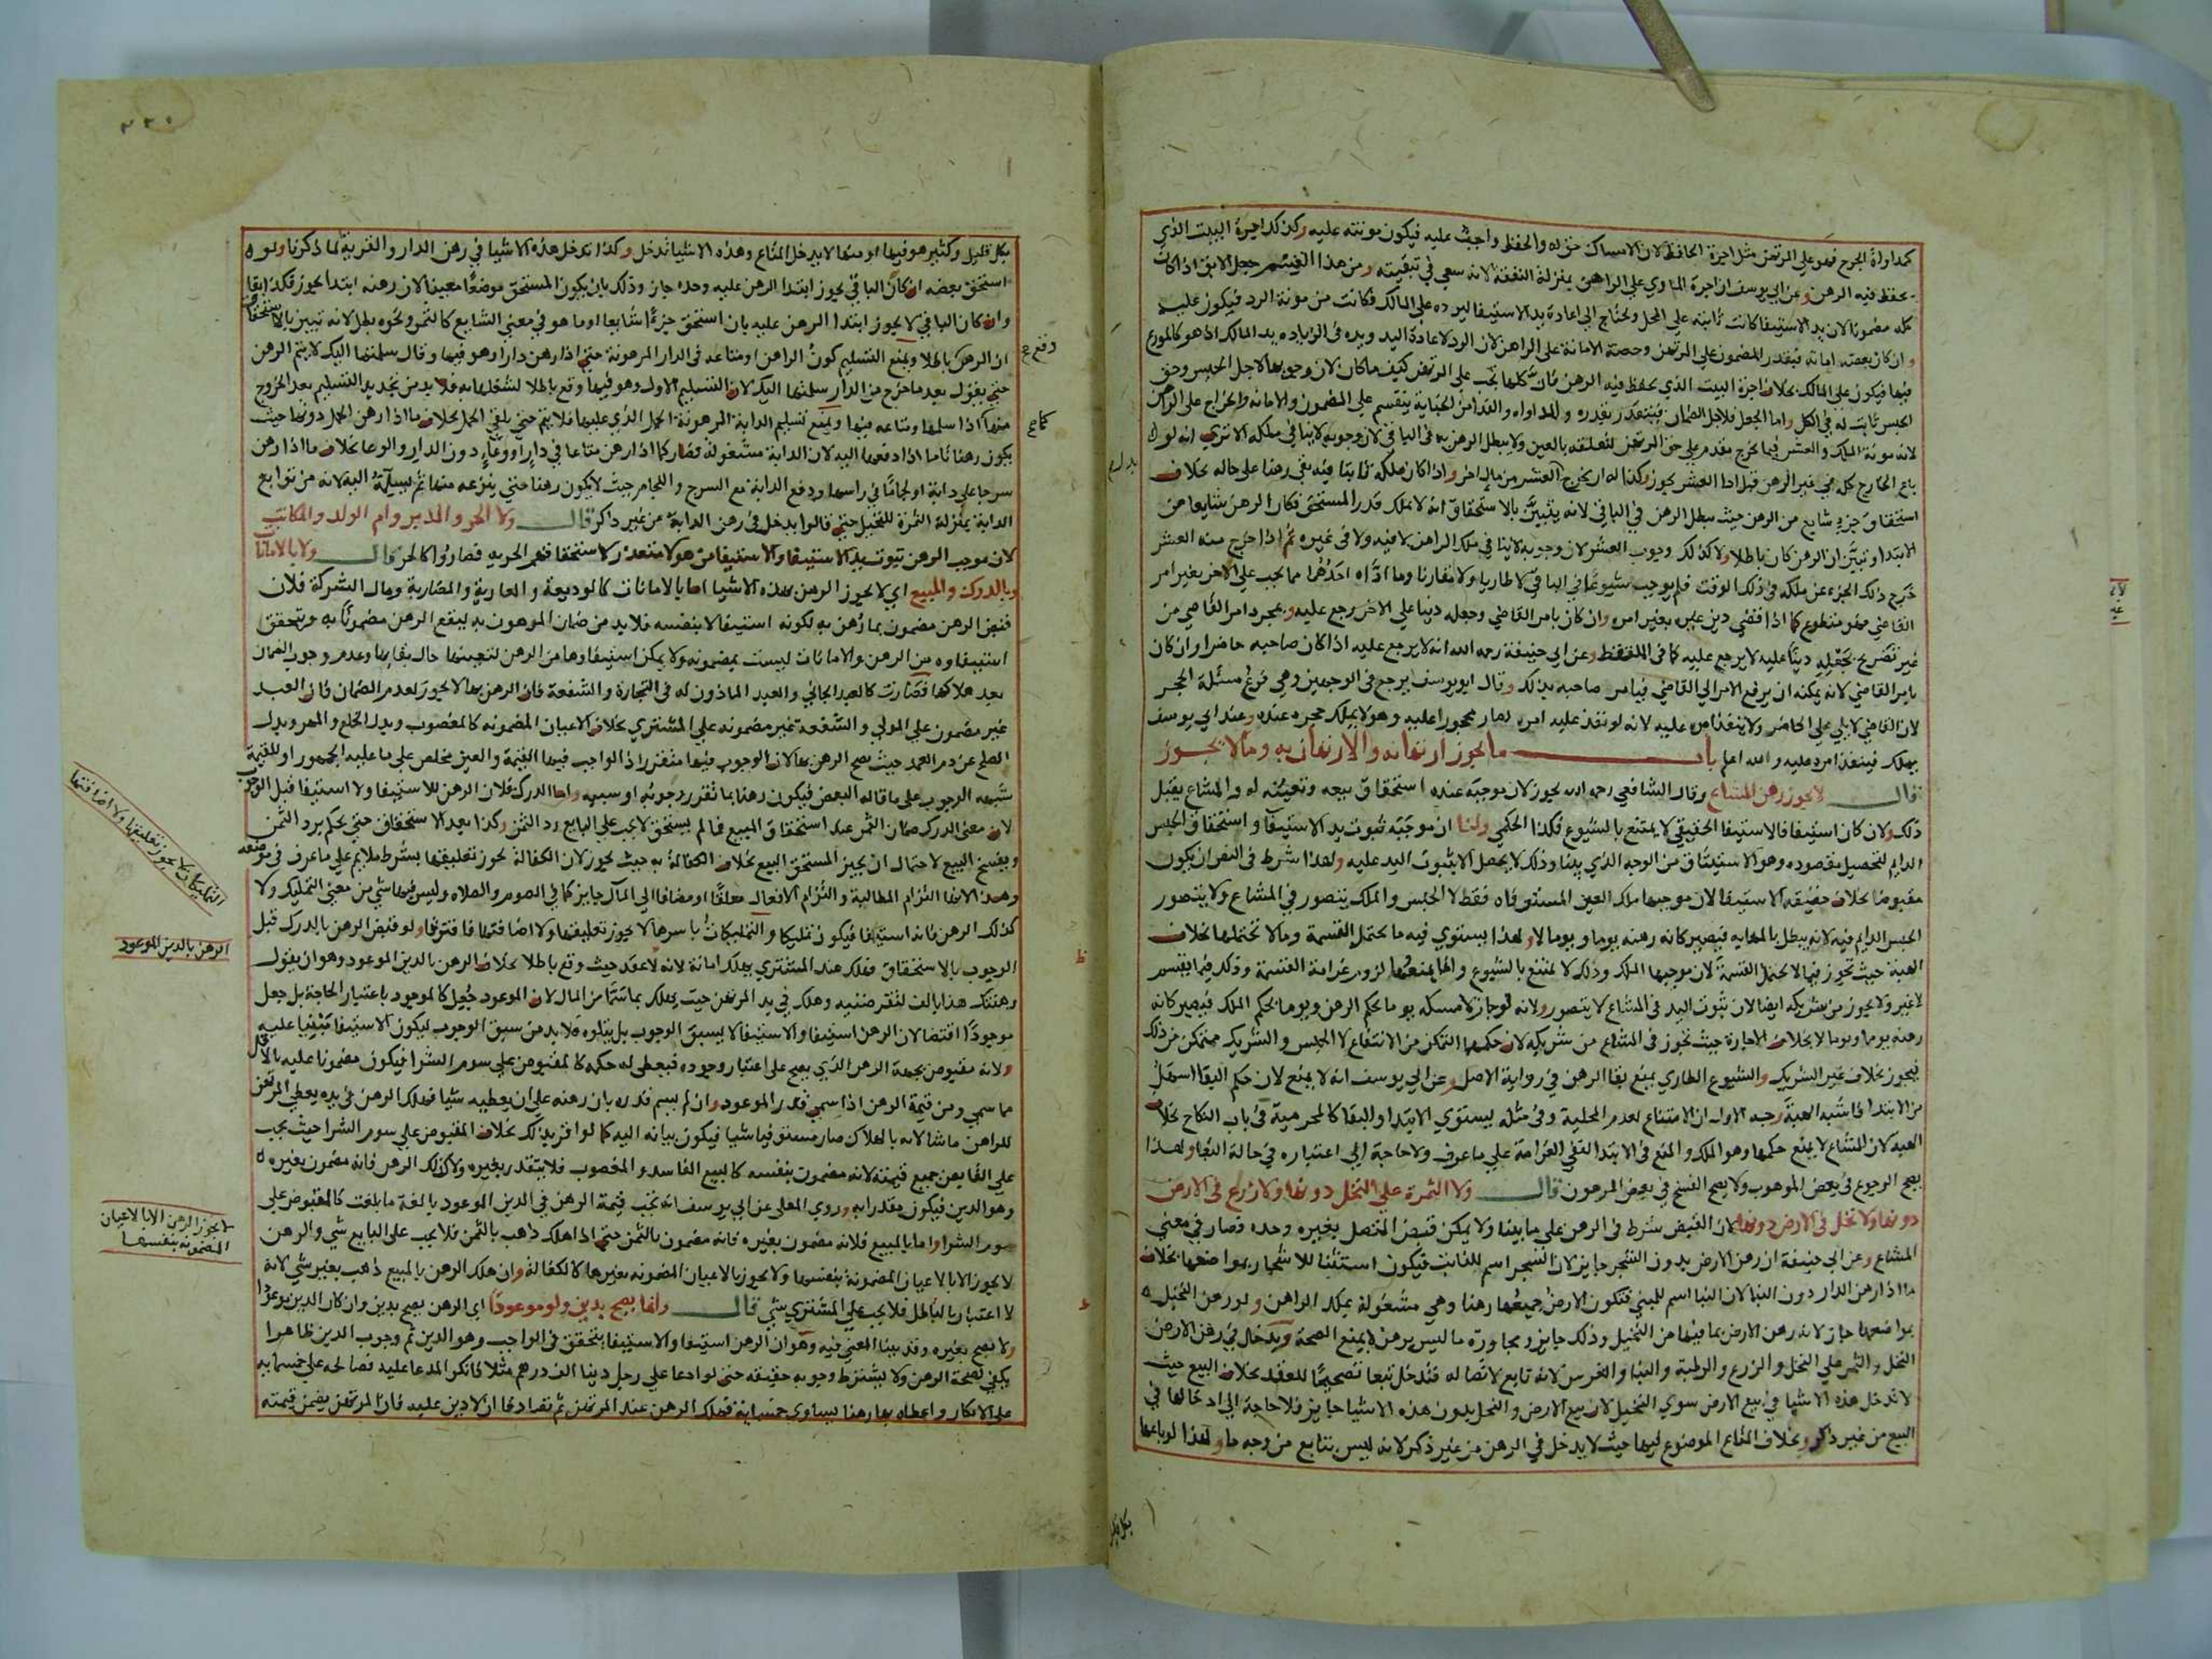 كمداواة الجرح فهو على المرتهن مثل اجرة الحافظ لان الامساك حق له والحفظ واجب عليه فيكون مونته عليه وكذلك اجرة البيت الذي
يحفظ فيه الرهن وعن ابي يوسف ان اجرة الماوي على الراهن بمنزلة النفقة لانه سعي في تبقيته ومن هذا القسم جعل الابق اذا كان
كله مضمونا لان يد الاستيفا كانت ثابتة على المحل ويحتاج الى اعادة يد الاستيفا ليرده على المالك فكانت من مونة الرد فيكون عليه
وان كان بعضه امانة فبقدر المضمون على المرتهن وحصة الامانة على الراهن لان الرد لاعادة اليد ويده في الزيادة يد المالك اذ هو كالمودع
فيها فيكون على المالك بخلاف اجرة البيت الذي يحفظ فيه الرهن فان كلها تجب على المرتهن كيف ما كان لان وجوبها لاجل الحبس وحق
الحبس ثابت له في الكل واما الجعل فلاجل الضمان فيتقدر بقدره والمداواة والفدا من الجناية ينقسم على المضمون والامانة والخراج على الراهن
لانه مونة الملك والعشر فيما يخرج مقدم على حق المرتهن لتعلقه بالعين ولا يبطل الرهن به في الباقي لان وجوبه لا ينافي ملكه الا تري انه لو
استحقاق جزء شايع من الرهن حيث يبطل الرهن في الباقي لانه يتبين بالاستحقاق انه لا يملك قدر المستحق فكان الرهن شايعا من
الابتدا وتبين ان الرهن كان باطلا ولا كذلك وجوب العشر لان وجوبه لا ينافي ملك الراهن لا فيه ولا في غيره ثم اذا خرج منه العشر
خرج ذلك الجزء عن ملكه في ذلك الوقت فلم يوجب شيوعا في الباقي لا طاريا ولا مقارنا وما اداه احدهما مما يجب على الاخر بغير امر
القاضي فهو متطوع كما اذا قضي دين غيره بغير امره وان كان بامر القاضي وجعله دينا على الاخر رجع عليه وبمجرد امر القاضي من
غير تصريح بجعله دينا عليه لا يرجع عليه كما في الملتقط وعن ابي حنيفة رحمه الله انه لا يرجع عليه اذا كان صاحبه حاضرا وان كان
بامر القاضي لانه يمكنه ان يرفع الامر الى القاضي فيامر صاحبه بذلك وقال ابو يوسف يرجع في الوجهين وهي فرع مسئلة الحجر
لان القاضي لا يلي على الحاضر ولا ينفذ امره عليه لانه لو نفذ عليه امره لصار محجورا عليه وهو لا يملك حجره عنده وعند ابي يوسف
يملك فينفذ امره عليه والله اعلم باب ما يجوز ارتهانه والارتهان به وما لا يجوز
قال لا يجوز رهن المشاع وقال الشافعي رحمه الله يجوز لان موجبه عنده استحقاق بيعه وتعينه له والمشاع يقبل
ذلك ولان كان استيفا فالاستيفا الحقيقي لا يمتنع بالشيوع فكذا الحكمي ولنا ان موجبه ثبوت يد الاستيفا واستحقاق الحبس
الدايم لتحصيل مقصوده وهو الاستيثاق من الوجه الذي بينا وذلك لا يحصل الا بثبوت اليد عليه ولهذا شرط في النص ان يكون
مقبوضا بخلاف حقيقة الاستيفا لان موجبها ملك العين المستوفاه فقط لا الحبس والملك يتصور في المشاع ولا يتصور
الحبس الدايم فيه لانه يبطل بالمهاياه فيصير كانه رهنه يوما ويوما لا ولهذا يستوي فيه ما يحتمل القسمة وما لا تحتملها بخلاف
الهبة حيث تجوز فيما لا يحتمل القسمة لان موجبها الملك وذلك لا يمتنع بالشيوع وانما يمنعها لزوم غرامة القسمة وذلك فيما يقسم
لا غير ولا يجوز من شريكه ايضا لان ثبوت اليد في المشاع لا يتصور ولانه لو جاز لامسكه يوما بحكم الرهن ويوما بحكم الملك فيصير كانه
رهنه يوما ويوما لا بخلاف الاجارة حيث تجوز في المشاع من شريكه لان حكمها التمكن من الانتفاع لا الحبس والشريك متمكن من ذلك
فيجوز بخلاف غير الشريك والشيوع الطاري يمنع بقا الرهن في رواية الاصل وعن ابي يوسف انه لا يمنع لان حكم البقا اسهل
من الابتدا فاشبه الهبة وجه الاول ان الامتناع لعدم المحلية وفي مثله يستوي الابتدا والبقا كالمحرمية في باب النكاح بخلاف
الهبة لان المشاع لا يمنع حكمها وهو الملك والمنع في الابتدا لنفي الغرامة على ما عرف ولا حاجة الى اعتباره في حالة البقا ولهذا
يصح الرجوع في بعض الموهوب ولا يصح الفسخ في بعض المرهون قال ولا الثمرة على النخل دونها ولا زرع في الارض
دونها ولا نخل في الارض دونها لان القبض شرط في الرهن على ما بينا ولا يمكن قبض المتصل بغيره وحده فصار في معنى
المشاع وعن ابي حنيفة ان رهن الارض بدون الشجر جايز لان الشجر اسم للنابت فيكون استثنا للاشجار بمواضعها بخلاف
ما اذا رهن الدار دون البنا لان البنا اسم للمبني فتكون الارض جميعها رهنا وهي مشغولة بملك الراهن ولو رهن النخيل
بمواضعها جاز لانه رهن الارض بما فيها من النخيل وذلك جايز ومجاورة ما ليس برهن لا يمنع الصحة ويدخل في رهن الارض
النخل والثمر على النخل والزرع والرطبة والبنا والغرس لانه تابع لاتصاله فتدخل تبعا تصحيحا للعقد بخلاف البيع حيث
لا تدخل هذه الاشيا في بيع الارض سوي النخيل لان بيع الارض والنخل بدون هذه الاشيا جايز فلا حاجة الى ادخالها في
البيع من غير ذكر وبخلاف المتاع الموضوع فيها حيث لا يدخل في الرهن من غير ذكر لانه ليس بتابع من وجه ما ولهذا لو باعها
بكل قليل وكثير هو فيها او منها لا يدخل المتاع وهذه الاشيا تدخل وكذا تدخل هذه الاشيا في رهن الدار والقرية لما ذكرنا ولو
استحق بعضه ان كان الباقي يجوز ابتدا الرهن عليه وحده جاز وذلك بان يكون المستحق موضعا معينا لان رهنه ابتدا يجوز فكذا بقا
وان كان الباقي لا يجوز ابتدا الرهن عليه بان استحق جزءا شايعا او ما هو في معنى الشايع كالثمر ونحوه بطل لانه تبين بالاستحقاق
ان الرهن باطلا ويمنع التسليم كون الراهن او متاعه في الدار المرهونة حتى اذا رهن دارا وهو فيها وقال سلمتها اليك لا يتم الرهن
حتى يقول بعد ما خرج من الدار سلمتها اليك لان التسليم الاول وهو فيها وقع باطلا لشغلها به فلا بد من تجديد التسليم بعد الخروج
منها كما اذا سلمها ومتاعه فيها ويمنع تسليم الدابة المرهونة الحمل الذي عليها فلا يتم حتى يلقي الحمل بخلاف ما اذا رهن الحمل دونها حيث
يكون رهنا تاما اذا دفعها اليه لان الدابة مشغولة فصار كما اذا رهن متاعا في دار او وعاء دون الدار والوعا بخلاف ما اذا رهن
سرجا على دابة او لجاما في راسها ودفع الدابة مع السرج واللجام حيث لا يكون رهنا حتى ينزعه منها ثم يسلمه اليه لانه من توابع
الدابة بمنزلة الثمرة للنخيل حتى قالوا يدخل في رهن الدابة من غير ذكر قال ولا الحر والمدبر وام الولد والمكاتب
لان موجب الرهن ثبوت يد الاستيفا والاستيفا من هولا متعذر لاستحقاقهم الحرية فصاروا كالحر قال ولا بالامانات
وبالدرك والمبيع اي لا يجوز الرهن بهذه الاشيا اما بالامانات كالوديعة والعارية والمضاربة ومال الشركة فلان
قبض الرهن مضمون بما رهن به لكونه استيفا لا بنفسه فلا بد من ضمان المرهون به ليقع الرهن مضمونا به ويتحقق
استيفاوه من الرهن والامانات ليست بمضمونة ولا يمكن استيفاوها من الرهن لتعينها حال بقايها وعدم وجوب الضمان
بعد هلاكها فصارت كالعبد الجاني والعبد الماذون له في التجارة والشفعة فان الرهن بها لا يجوز لعدم الضمان فان العبد
غير مضمون على المولي والشفعة غير مضمونة على المشتري بخلاف الاعيان المضمونة كالمغصوب وبدل الخلع والمهر وبدل
الصلح عن دم العمد حيث يصح الرهن بها لان الوجوب فيها متقرر اذ الواجب فيها القيمة والعين مخلص على ما عليه الجمهور او للقيمة
شبهة الوجوب على ما قاله البعض فيكون رهنا بما تقرر وجوبه او سببه واما الدرك فلان الرهن للاستيفا ولا استيفا قبل الوجوب
لان معنى الدرك ضمان الثمن عند استحقاق المبيع فما لم يستحق لا يجب على البايع رد الثمن وكذا بعد الاستحقاق حتى يحكم برد الثمن
ويفسخ البيع لاحتمال ان يجيز المستحق البيع بخلاف الكفالة به حيث يجوز لان الكفالة يجوز تعليقها بشرط ملايم على ما عرف في موضعه
وهذا لانها التزام المطالبة والتزام الافعال معلقا او مضافا الى المآل جايز كما في الصوم والصلاه وليس فيها شي من معنى التمليك ولا
كذلك الرهن فانه استيفا فيكون تمليكا والتمليكات باسرها لا يجوز تعليقها ولا اضافتها فافترقا ولو قبض الرهن بالدرك قبل
الوجوب بالاستحقاق فهلك عند المشتري يهلك امانة لانه لا عقد حيث وقع باطلا بخلاف الرهن بالدين الموعود وهو ان يقول
رهنتك هذا بالف لتقرضنيه وهلك في يد المرتهن حيث يهلك بما سمي من المال لان الموعود جعل كالموجود باعتبار الحاجة بل جعل
موجودا اقتضا لان الرهن استيفا والاستيفا لا يسبق الوجوب بل يتلوه فلا بد من سبق الوجوب ليكون الاستيفا مبنيا عليه
ولانه مقبوض بجهة الرهن الذي يصح على اعتبار وجوده فيعطى له حكمه كالمقبوض على سوم الشرا فيكون مضمونا عليه بالاقل
مما سمي ومن قيمة الرهن اذا سمي قدر الموعود وان لم يسم قدره بان رهنه على ان يعطيه شيا فهلك الرهن في يده يعطي المرتهن
للراهن ما شا لانه بالهلاك صار مستوفيا شيا فيكون بيانه اليه كما لو اقر بذلك بخلاف المقبوض على سوم الشرا حيث يجب
على القابض جميع قيمته لانه مضمون بنفسه كالبيع الفاسد والمغصوب فلا يتقدر بغيره ولا كذلك الرهن فانه مضمون بغيره
وهو الدين فيكون مقدرا به وروي المعلى عن ابي يوسف انه تجب قيمة الرهن في الدين الموعود بالغة ما بلغت كالمقبوض على
سوم الشرا واما بالمبيع فلانه مضمون بغيره فانه مضمون بالثمن حتى اذا هلك ذهب بالثمن فلا يجب على البايع شي والرهن
لا يجوز الا بالاعيان المضمونة بنفسها ولا يجوز بالاعيان المضمونة بغيرها كالكفالة وان هلك الرهن بالمبيع ذهب بغير شي لانه
لا اعتبار بالباطل فلا يجب على المشتري شي قال وانما يصح بدين ولو موعودا اي الرهن يصح بدين وان كان الدين موعودا
ولا يصح بغيره وقد بينا المعنى فيه وهو ان الرهن استيفا والاستيفا يتحقق في الواجب وهو الدين ثم وجوب الدين ظاهرا
يكفي لصحة الرهن ولا يشترط وجوبه حقيقة حتى لو ادعا على رجل دينا الف درهم مثلا فانكر المدعا عليه فصالحه على خمسمايه
على الانكار واعطاه بها رهنا يساوي خمسماية فهلك الرهن عند المرتهن ثم تصادقا ان لا دين عليه فان المرتهن يضمن قيمته
التمليكات لا يجوز تعليقها ولا اضافتها
الرهن بالدين الموعود
لا يجوز الرهن الا بالاعيان
المضمونة بنفسها
بكل قليل